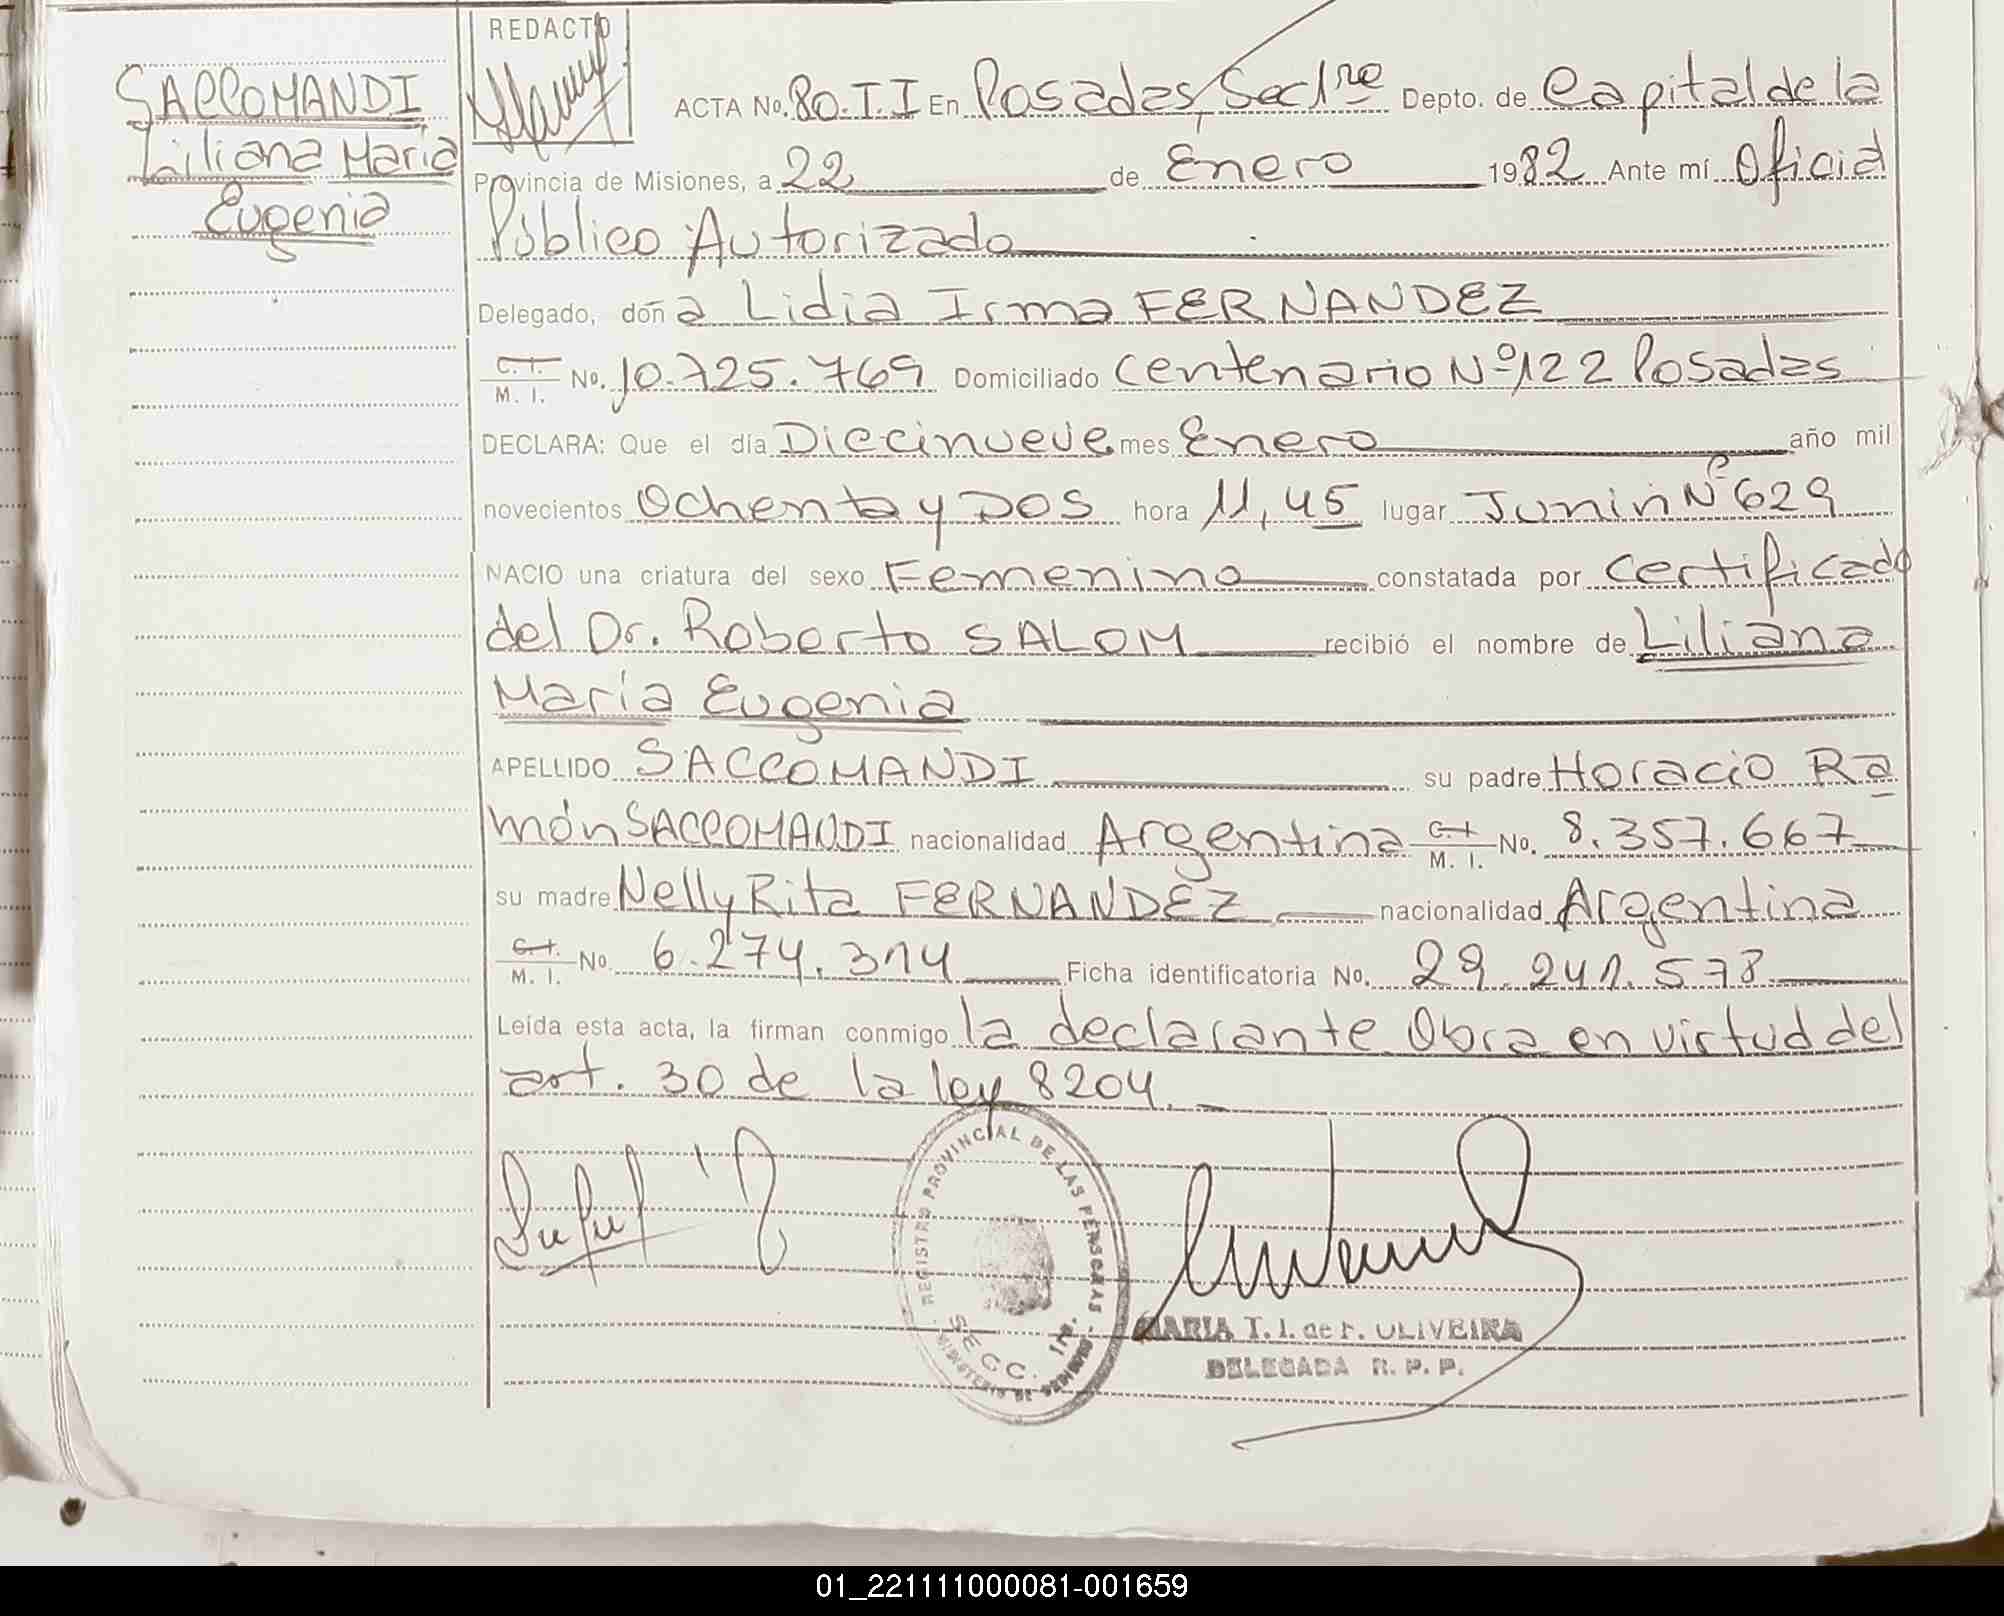 SACCOMANDI
Liliana María
Eugenia
REDACTO
ACTA No. 80.T.I En Posadas, Sec 1ra Depto. de Capital de la
Provincia de Misiones, a 22 de Enero 1982 Ante mí Oficial
Público Autorizado
Delegado, doña Lidia Irma FERNANDEZ
C.I.
M. I. No. 10.725.769 Domiciliado Centenario Nº 122 Posadas
DECLARA: Que el día Diecinueve mes Enero año mil
novecientos Ochenta y DOS hora 11,45 lugar Junín Nº 629
NACIO una criatura del sexo Femenino constatada por certificado
del Dr. Roberto SALOM recibió el nombre de Liliana
María Eugenia
APELLIDO SACCOMANDI su padre Horacio Ra
món SACCOMANDI nacionalidad Argentina C.I. M. I. No. 8.357.667
su madre Nelly Rita FERNANDEZ nacionalidad Argentina
C.I. M. I. No. 6.274.314 Ficha identificatoria No. 29.241.578
Leída esta acta, la firman conmigo la declarante Obra en virtud del
art. 30 de la ley 8204.
REGISTRO PROVINCIAL DE LAS PERSONAS
SECC. 1ra.
MINISTERIO DE GOBIERNO
MARIA T. I. de F. OLIVEIRA
DELEGADA R. P. P.
01_221111000081-001659